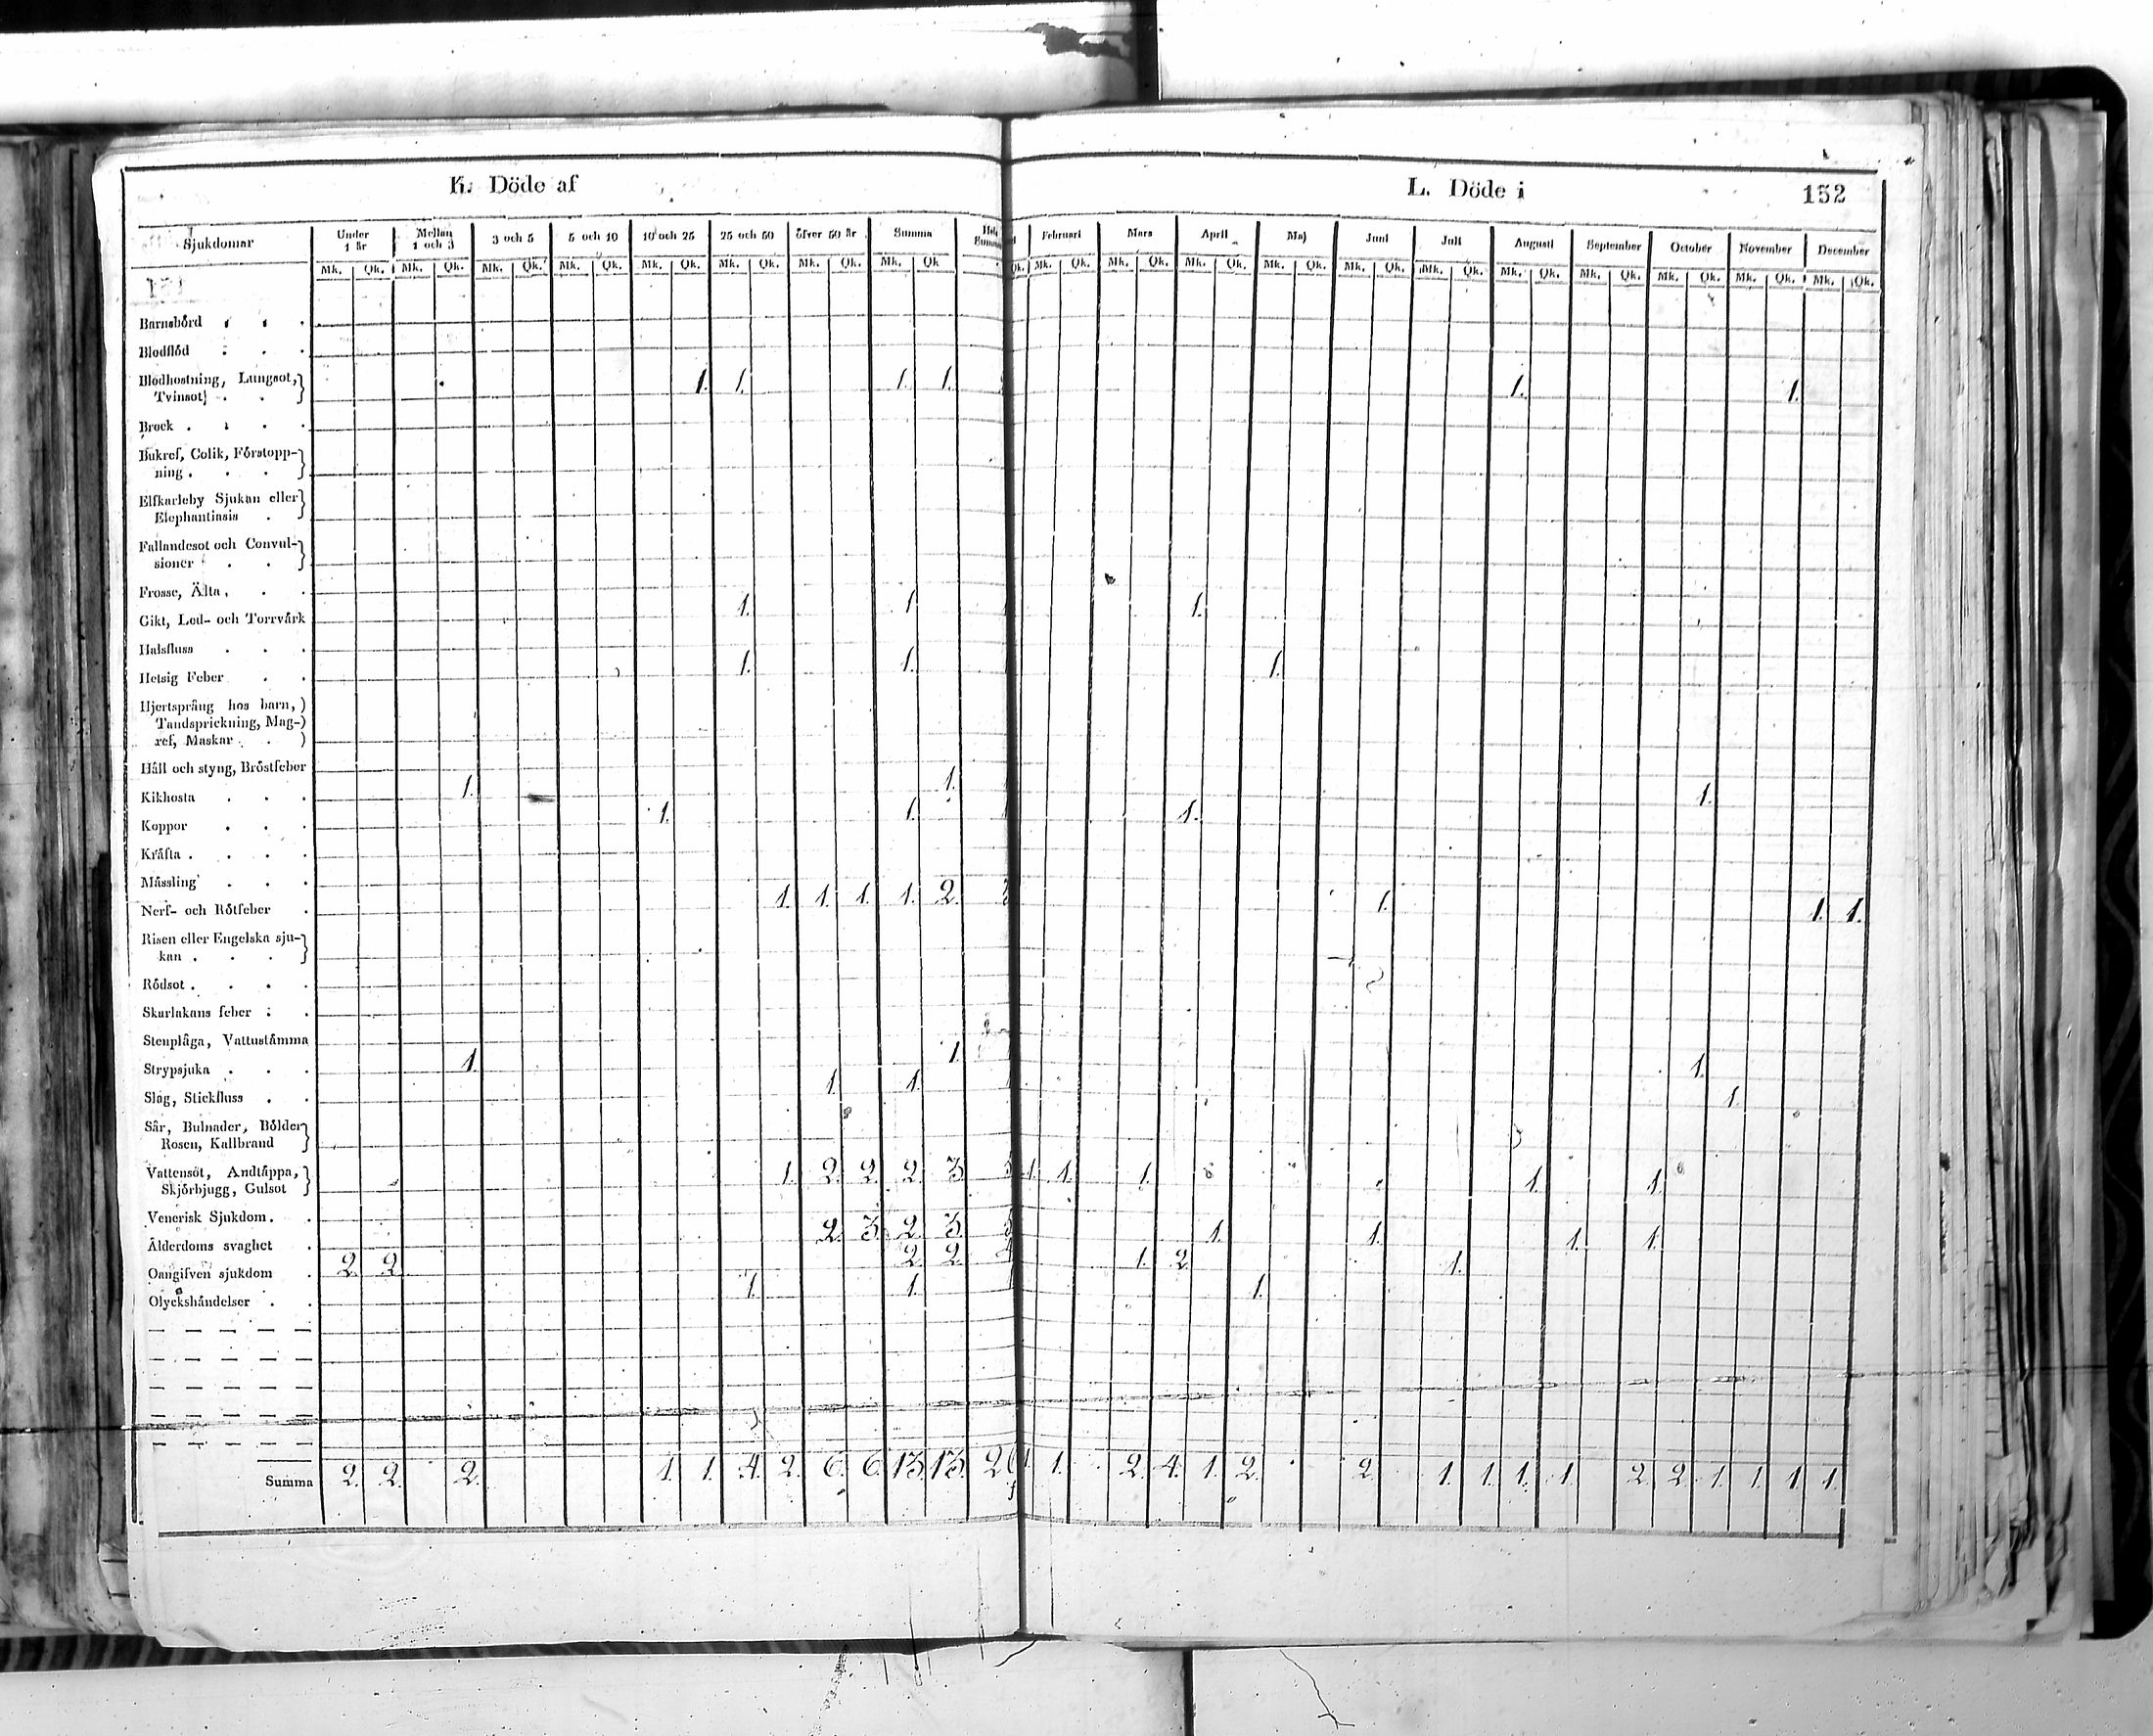 K. Döde af
L. Döde i 152
Sjukdomar Under 1 år Mellan 1 och 3 3 och 5 5 och 10 10 och 25 25 och 50 öfver 50 år Summa
Februari Mars April Maj Juni Juli Augusti September October November December
Mk. Qk. Mk. Qk. Mk. Qk. Mk. Qk. Mk. Qk. Mk. Qk. Mk. Qk. Mk. Qk
Qk. Mk. Qk. Mk. Qk. Mk. Qk. Mk. Qk. Mk. Qk. Mk. Qk. Mk. Qk. Mk. Qk. Mk. Qk. Mk. Qk. Mk. Qk.
Barnsbörd
Blodflöd
Blodhostning, Lungsot, 1. 1. 1. 1. 1. 1.
Tvinsot
Brock
Bukref, Colik, Förstopp-
ning
Elfkarleby Sjukan eller
Elephantiasis
Fallandesot och Convul-
sioner
Frosse, Älta
Gikt, Led- och Torrvärk 1. 1. 1.
Halsfluss
Hetsig Feber 1. 1. 1.
Hjertsprång hos barn,
Tandsprickning, Mag-
ref, Maskar
Håll och styng, Bröstfeber
Kikhosta 1. 1. 1.
Koppor 1. 1. 1.
Kräfta
Mässling
Nerf- och Rötfeber 1. 1. 1. 1. 2. 3 1. 1. 1.
Risen eller Engelska sju-
kan
Rödsot
Skarlakans feber
Stenplåga, Vattustämma
Strypsjuka 1. 1. 1.
Slag, Stickfluss 1. 1. 1.
Sår, Bulnader, Bölder
Rosen, Kallbrand
Vattensot, Andtäppa, 1. 2. 2. 2. 3. 5 1. 1. 1. 1. 1.
Skjörbjugg, Gulsot
Venerisk Sjukdom
Ålderdoms svaghet 2. 3. 2. 3. 5 1. 1. 1. 1.
Oangifven sjukdom 2. 2. 2. 2. 4 1. 2. 1.
Olyckshändelser 1. 1. 1.
Summa 2. 2. 2. 1. 1. 4. 2. 6. 6. 13. 13. 26 1. 1. 2. 4. 1. 2. 2. 1. 1. 1. 1. 2. 2. 1. 1. 1. 1.